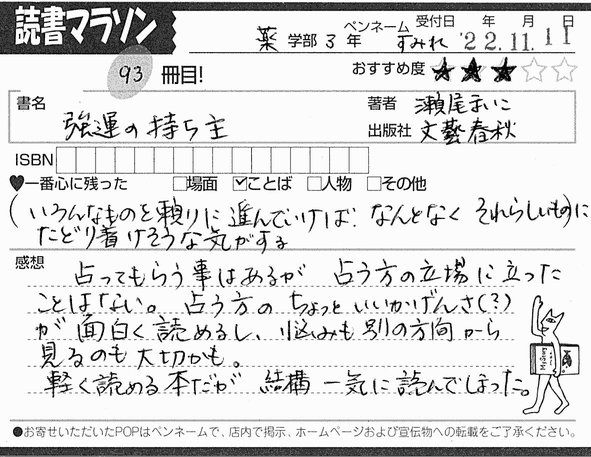 読書マラソン
薬 学部 3 年 ペンネーム すみれ 受付日 年 月 日 '22.11.11
93 冊目!
おすすめ度 ★★★☆☆
書名 強運の持ち主
著者 瀬尾まいこ
出版社 文藝春秋
ISBN
♥一番心に残った □場面 ☑ことば □人物 □その他
(いろんなものを頼りに進んでいけば なんとなく それらしいものに
たどり着けそうな気がする
感想
占ってもらう事はあるが 占う方の立場に立った
ことはない。占う方の ちょっと いいかげんさ(?)
が 面白く読めるし、悩みも 別の方向から
見るのも大切かも。
軽く読める本だが 結構 一気に読んでしまった。
Mystery
●お寄せいただいたPOPはペンネームで、店内で掲示、ホームページおよび宣伝物への転載をご了承ください。